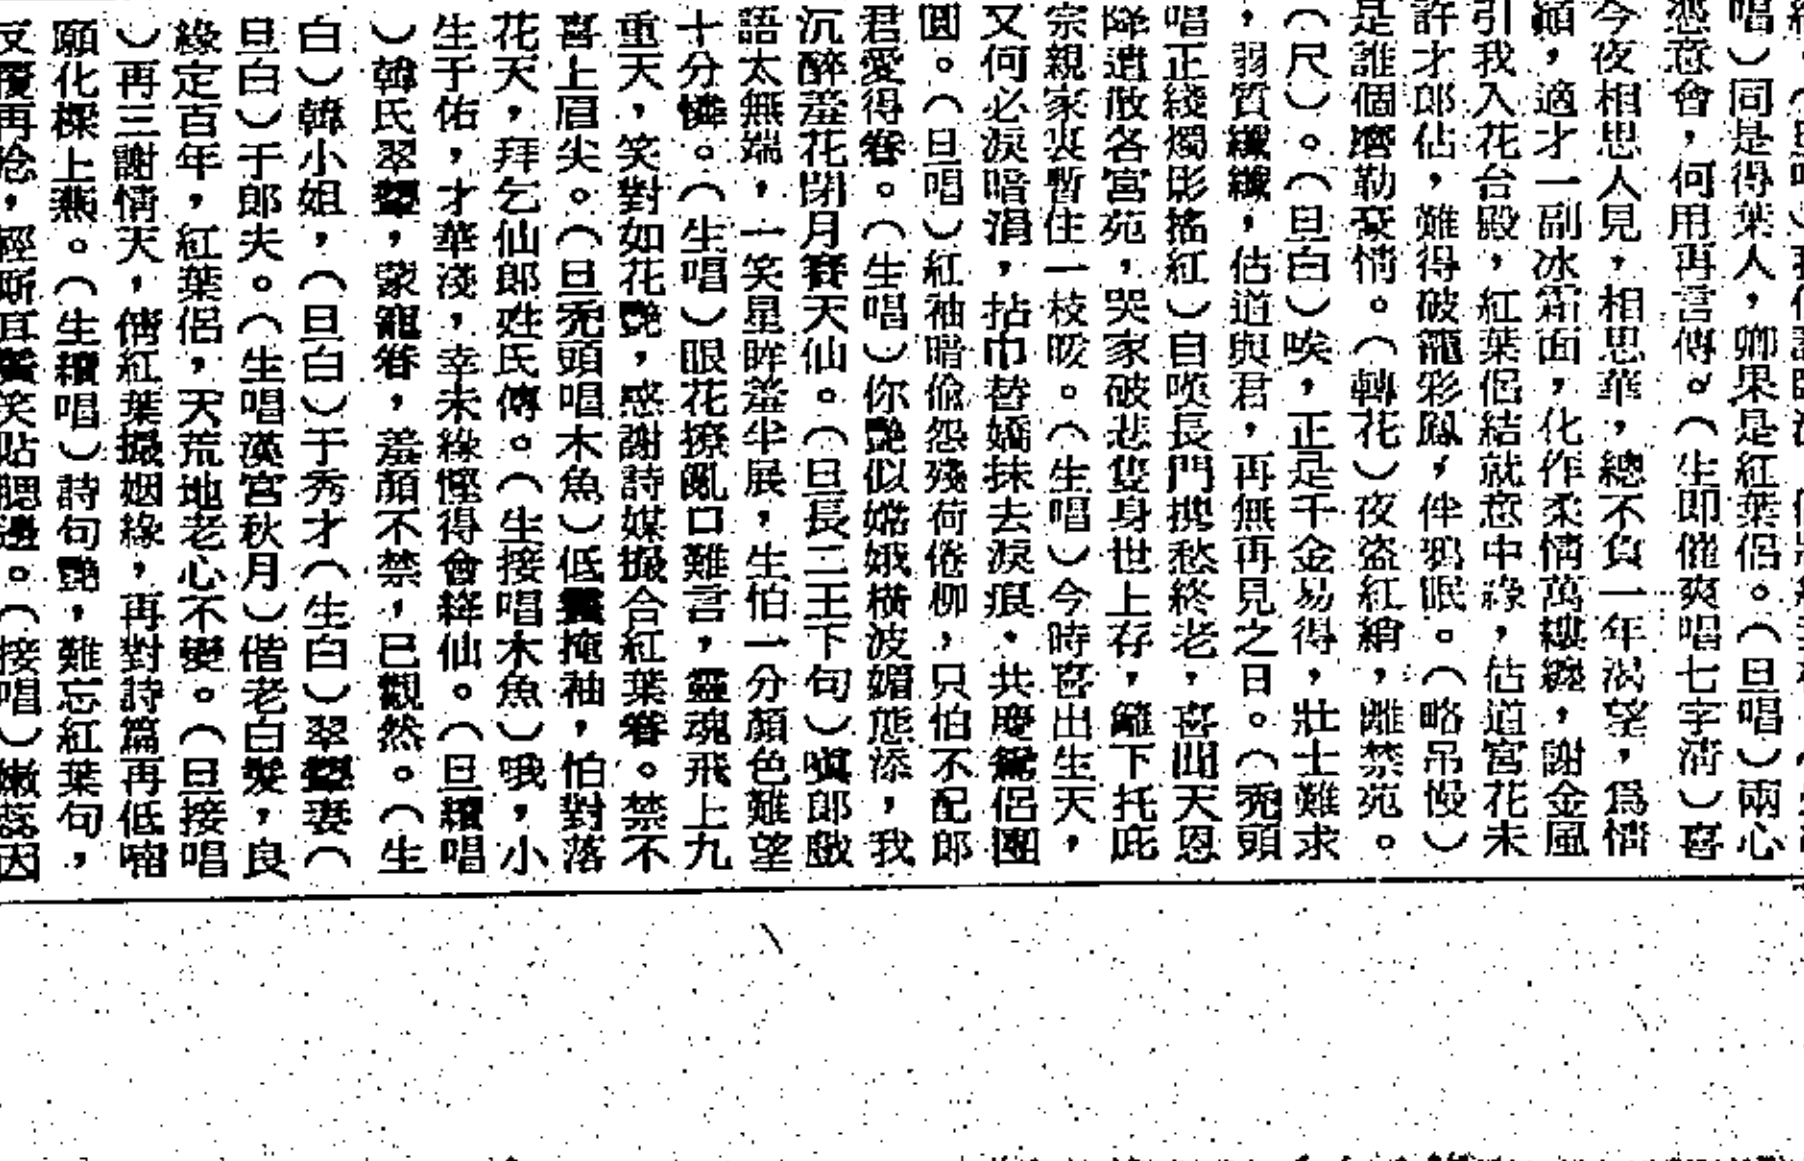 唱）同是得葉人，卿果是紅葉侶。（旦唱）兩心
意會，何用再言傳。（生即催爽唱七字清）喜
今夜相思人見，相思華，總不負一年渴望，爲情
顚，適才一副冰霜面，化作柔情萬縷纏，謝金風
引我入花台殿，紅葉侶結就意中緣，估道宮花未
許才郎佔，難得破籠彩鳳，伴鴉眠。（略吊慢）
是誰個磨勒豪情。（轉花）夜盜紅綃，離禁苑。
（尺）。（旦白）唉，正是千金易得，壯士難求
，弱質纖纖，估道與君，再無再見之日。（禿頭
唱正綫燭影搖紅）自嘆長門攬愁終老，喜聞天恩
降遣散各宮苑，哭家破悲隻身世上存，籬下托庇
宗親家裏暫住一枝暖。（生唱）今時喜出生天，
又何必淚暗涓，拈巾替嬌抹去淚痕，共慶鴛侶團
圓。（旦唱）紅袖暗偷怨殘荷倦柳，只怕不配郎
君愛得眷。（生唱）你艷似嫦娥橫波媚態添，我
沉醉羞花閉月賽天仙。（旦長二王下句）嗔郎戲
語太無端，一笑星眸羞半展，生怕一分顏色難望
十分憐。（生唱）眼花撩亂口難言，靈魂飛上九
重天，笑對如花艷，感謝詩媒撮合紅葉眷。禁不
喜上眉尖。（旦禿頭唱木魚）低鬟掩袖，怕對落
花天，拜乞仙郎姓氏傳。（生接唱木魚）哦，小
生于佑，才華淺，幸未緣慳得會絳仙。（旦續唱
）韓氏翠顰，蒙寵眷，羞顏不禁，已覥然。（生
白）韓小姐，（旦白）于秀才（生白）翠顰妻（
旦白）于郎夫。（生唱漢宮秋月）偕老白髮，良
緣定百年，紅葉侶，天荒地老心不變。（旦接唱
）再三謝情天，倩紅葉撮姻緣，再對詩篇再低喃
願化樑上燕。（生續唱）詩句艷，難忘紅葉句，
反覆再唸，輕嘶笑貼腮邊。（接唱）嫩蕊因